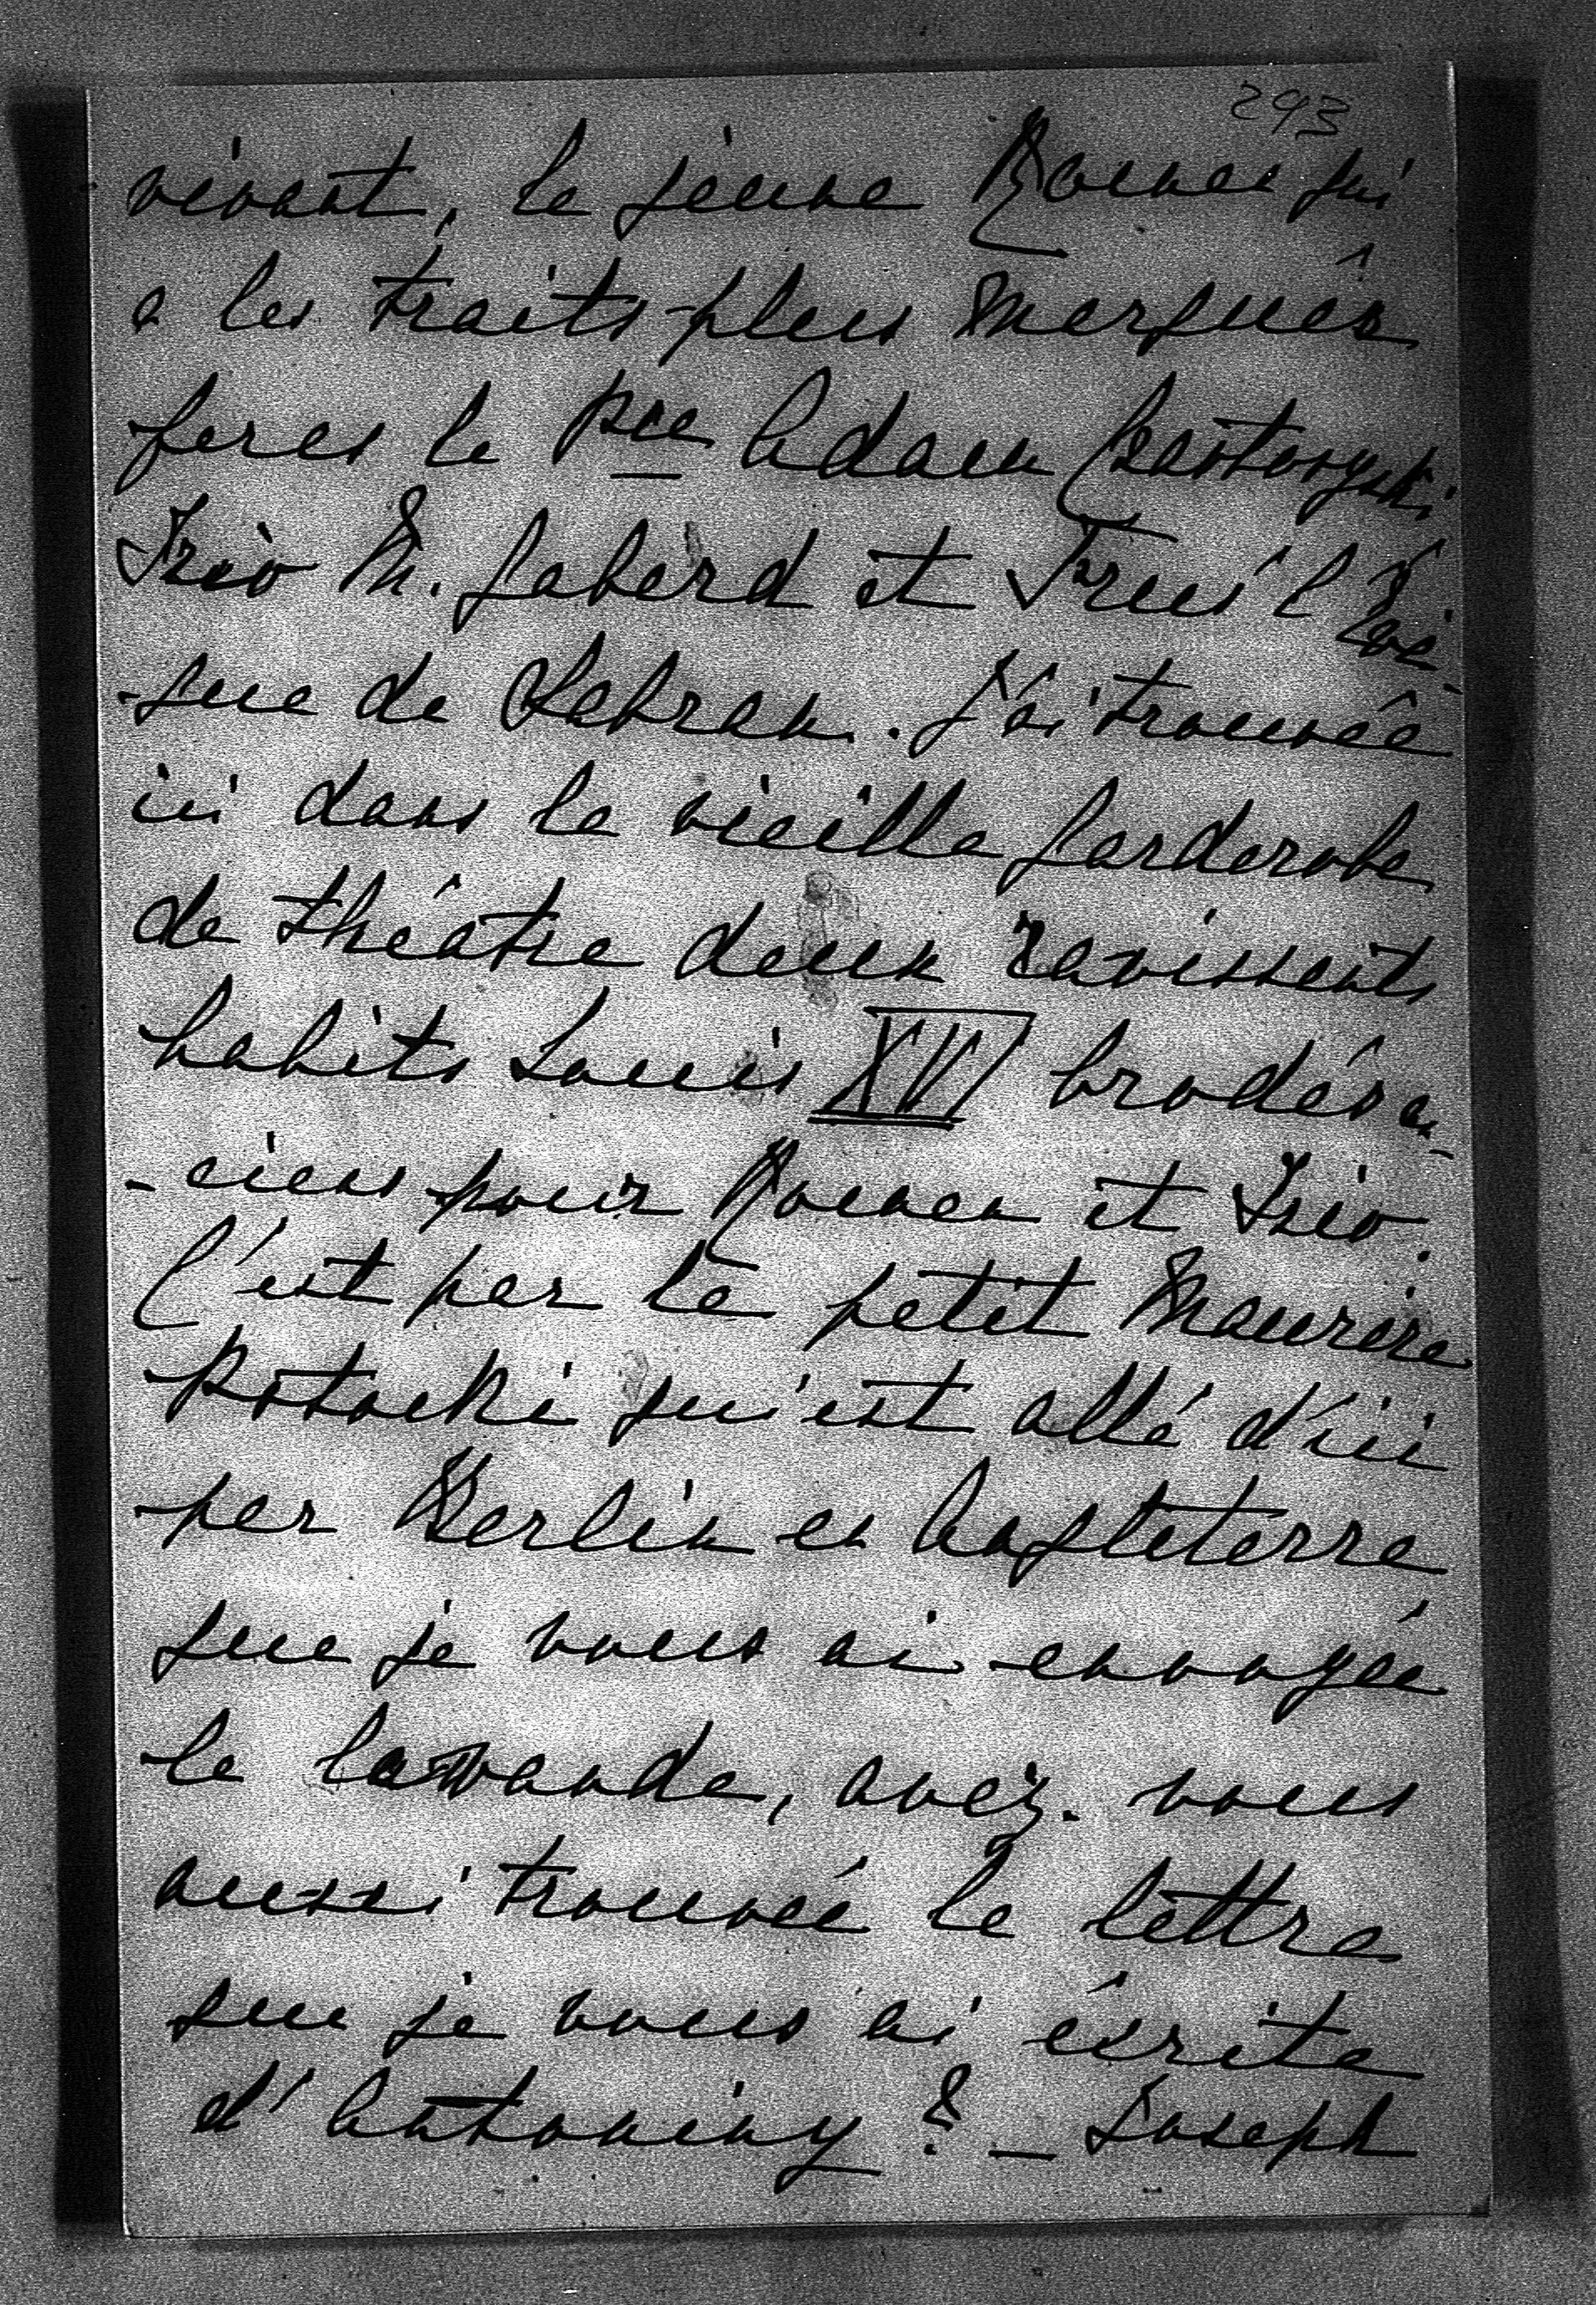 293
vivant, le jeune Roman qui
a les traits plus marqués
feras le Pce Adam Czartoryski
Izio M. Gaberd et l'Evê-
-que de Sebran. J'ai trouvée
ici dans la vieille garderobe
de théâtre deux ravissants
habits Louis XVI brodés an-
-ciens pour Roman et Izio.
C'est par le petit Maurice
Potocki qui est allé d'ici
par Berlin en Angleterre
que je vous ai envoyée
la lawande, avez-vous
aussi trouvée la lettre
que je vous ai écrite
d'Antoniny ? — Joseph